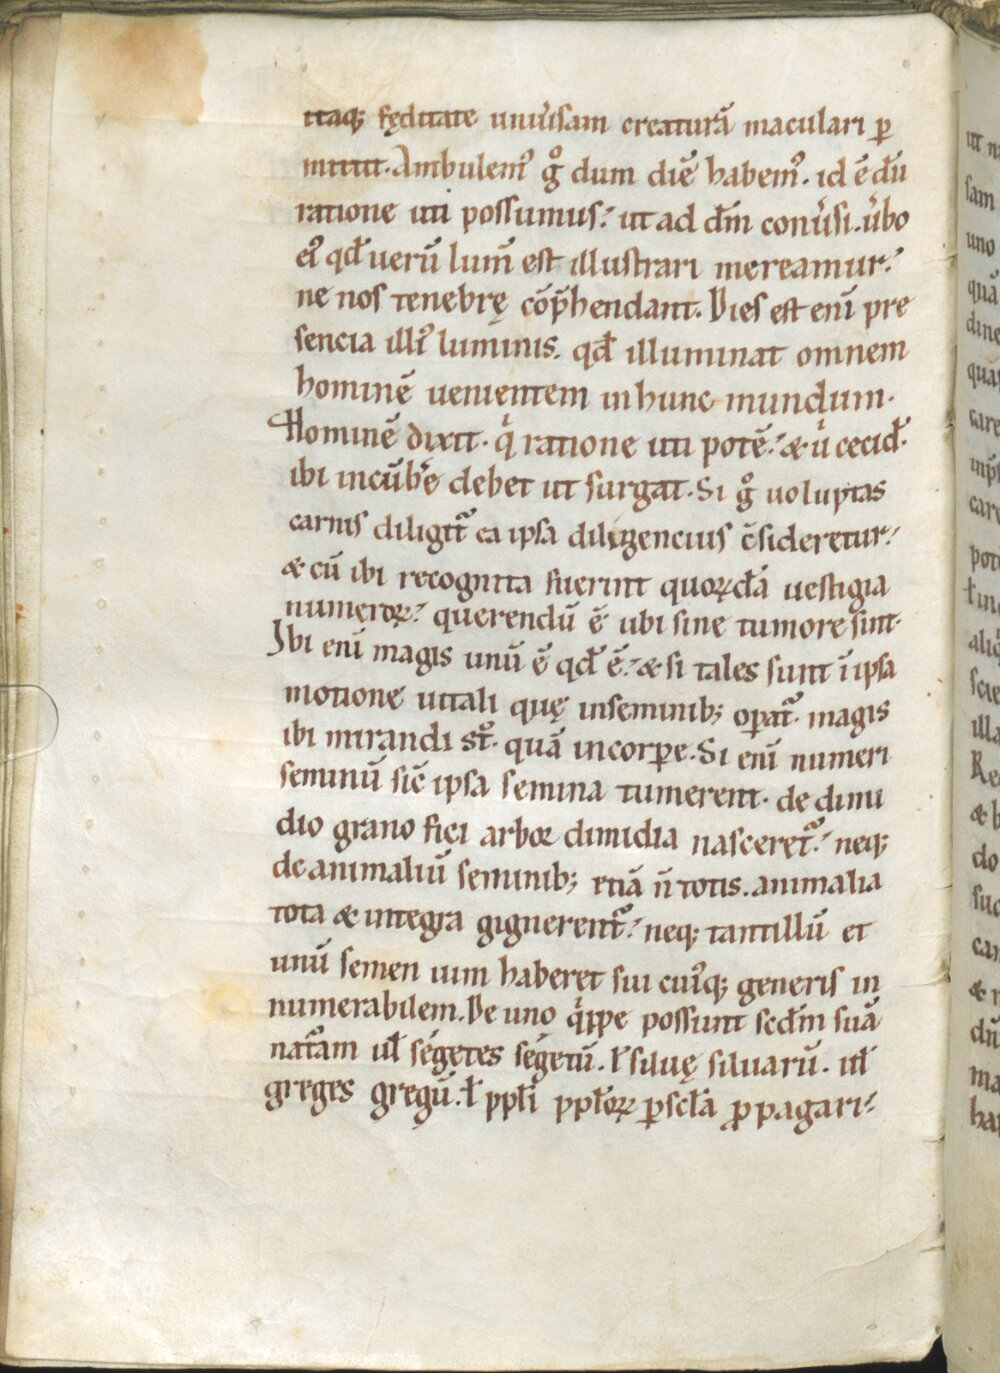 itaq; fęditate uniũsam creaturã maculari ꝑ
mittit. Ambulem᷒ gͦ dum diẽ habem᷒. id ẽ dũ
ratione uti possumus: ut ad dm̃ conũsi. ũbo
ei᷒ qđ uerũ lum̃ est illustrari mereamur:
ne nos tenebrę cõp̃hendant. Dies est eni̅ pre
sencia illi᷒ luminis. qđ illuminat omnem
hominẽ uenientem in hunc mundum.
Hominẽ dixit. qͥ ratione uti potẽ: & uͥ cecid̃.
ibi incũbe᷒ debet ut surgat. Si gͦ uoluptas
carnis diligit᷑ ea ipsa diligencius c̃sideretur:
& cũ ibi recognita fuerint quorꝝdã uestigia
numeroꝝ: querendũ ẽ ubi sine tumore sint.
Ibi eni̅ magis unũ ẽ qđ ẽ: & si tales sunt i̅ ipsa
motione uitali quę in seminib; oꝑat᷑. magis
ibi mirandi st̃. quã in corꝑe. Si eni̅ numeri
seminũ sic̃ ipsa semina tumerent. de dimi
dio grano fici arboꝛ dimidia nasceret᷑: neq;
de animaliũ seminib; etiã ñ totis. animalia
tota & integra gignerent᷑: neq; tantillũ et
unũ semen uim haberet sui cui᷒q; generis in
numerabilem. De uno qͥppe possunt scd̃m suã
nat᷑am ułségetes ségetũ. ł siluę siluarũ. uł
greges gregũ. ł ppłi ppłoꝝ ꝑ scła ꝓpagari: